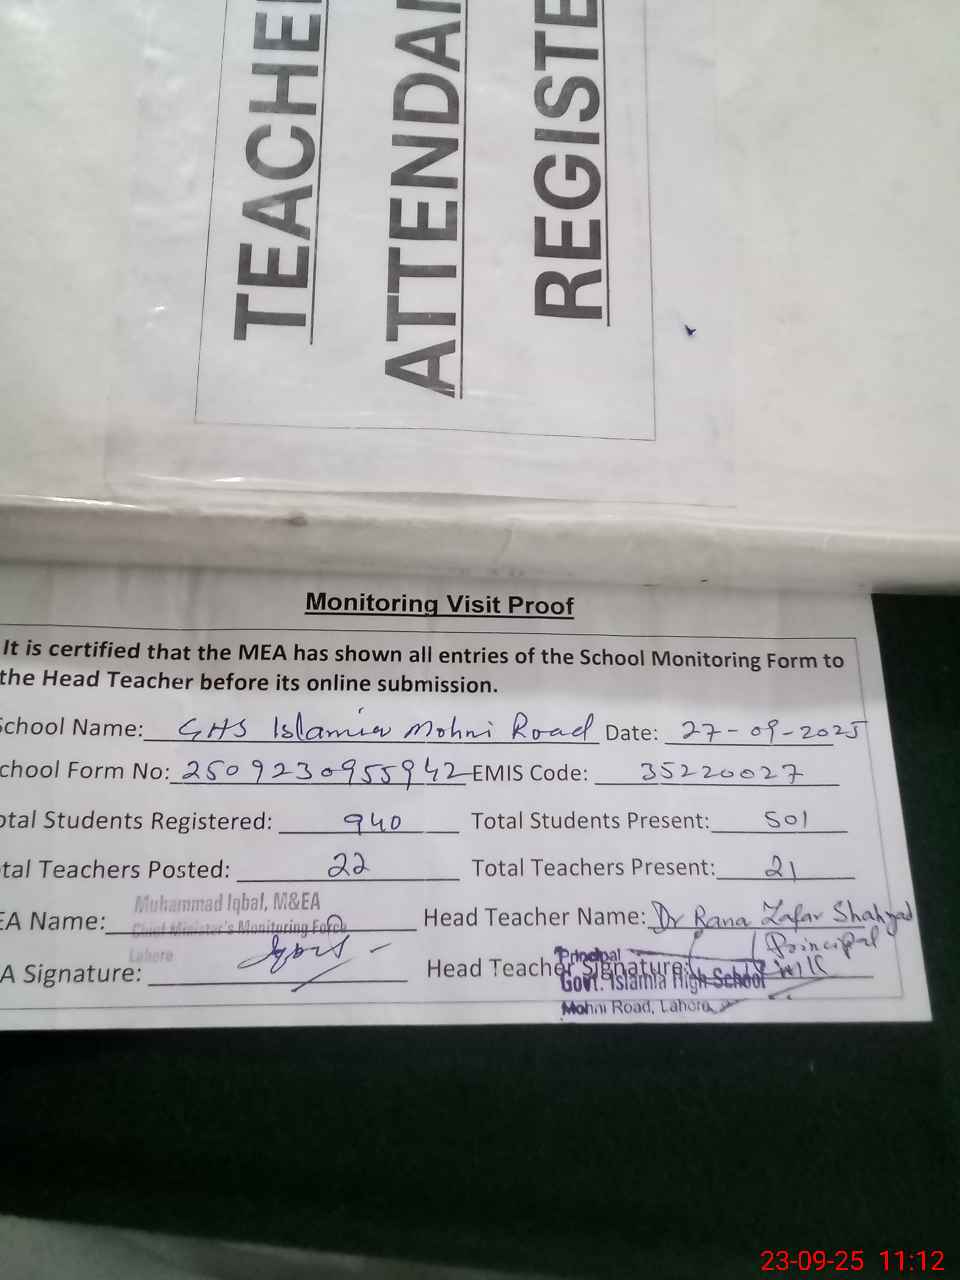 TEACHE
ATTENDAN
REGISTE
Monitoring Visit Proof
It is certified that the MEA has shown all entries of the School Monitoring Form to
the Head Teacher before its online submission.
School Name: GHS Islamia Mohni Road Date: 27-09-2025
chool Form No: 250923095942 EMIS Code: 35220027
otal Students Registered: 940 Total Students Present: 501
tal Teachers Posted: 22 Total Teachers Present: 21
Muhammad Iqbal, M&EA
EA Name: Chief Minister's Monitoring Force Head Teacher Name: Dr Rana Zafar Shahzad
Lahore
Principal
A Signature: Head Teacher Signature:
Principal
Govt. Islamia High School
Mohni Road, Lahore
23-09-25 11:12